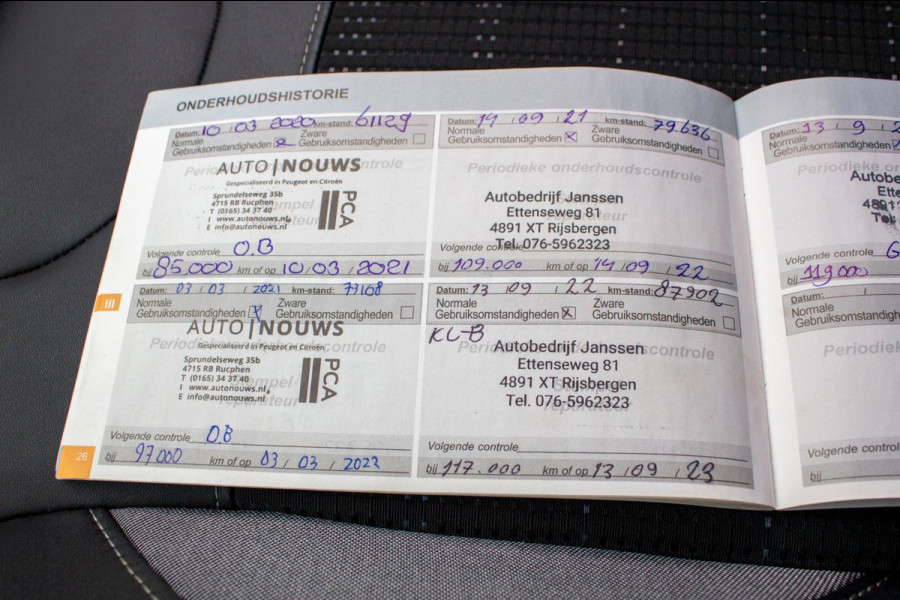 ONDERHOUDSHISTORIE
Datum: 10 03 2020 km-stand: 61129
Normale Zware
Gebruiksomstandigheden Gebruiksomstandigheden
AUTO|NOUWS
Gespecialiseerd in Peugeot en Citroën
Sprundelseweg 35b
4715 RB Rucphen
T (0165) 34 37 40
I www.autonouws.nl
E info@autonouws.nl
PCA
Volgende controle O.B
bij 85.000 km of op 10.03 / 2021
Datum: 03 / 03 / 2021 km-stand: 73168
Normale Zware
Gebruiksomstandigheden Gebruiksomstandigheden
AUTO|NOUWS
Gespecialiseerd in Peugeot en Citroën
Sprundelseweg 35b
4715 RB Rucphen
T (0165) 34 37 40
I www.autonouws.nl
E info@autonouws.nl
PCA
Volgende controle O.B
bij 97.000 km of op 03 / 03 / 2022
III
26
Datum: 14 / 09 / 21 km-stand: 79.636
Normale Zware
Gebruiksomstandigheden Gebruiksomstandigheden
Periodieke onderhoudscontrole
Autobedrijf Janssen
Ettenseweg 81
4891 XT Rijsbergen
Tel. 076-5962323
Volgende controle
bij 109.000 km of op 14 / 09 / 22
Datum: 13 / 09 / 22 km-stand: 87902
Normale Zware
Gebruiksomstandigheden Gebruiksomstandigheden
KL-B
Autobedrijf Janssen
Ettenseweg 81
4891 XT Rijsbergen
Tel. 076-5962323
Volgende controle
bij 117.000 km of op 13 / 09 / 23
Datum: 13 / 9 / 2
Normale
Gebruiksomstandigheden
Periodieke on
Autobe
Ette
4891
Tel.
Volgende controle
bij 119.000
Datum: /
Normale
Gebruiksomstandigheden
Periodiek
Volgende controle
bij